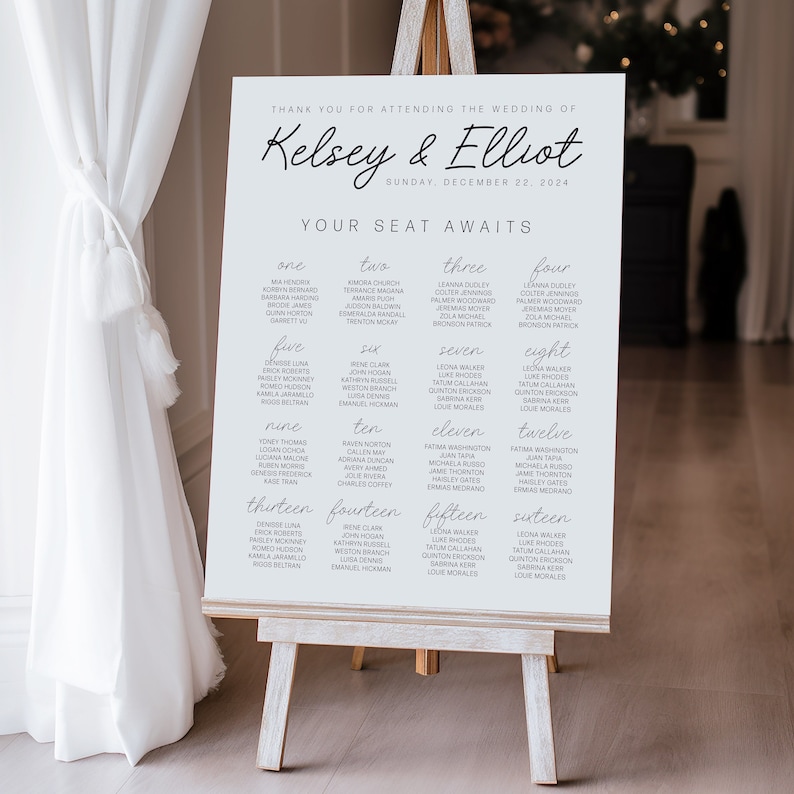 THANK YOU FOR ATTENDING THE WEDDING OF
Kelsey & Elliot
SUNDAY, DECEMBER 22, 2024
YOUR SEAT AWAITS
one
MIA HENDRIX
KORBYN BERNARD
BARBARA HARDING
BRODIE JAMES
QUINN HORTON
GARRETT VU
two
KIMORA CHURCH
TERRANCE MAGANA
AMARIS PUGH
JUDSON BALDWIN
ESMERALDA RANDALL
TRENTON MCKAY
three
LEANNA DUDLEY
COLTER JENNINGS
PALMER WOODWARD
JEREMIAS MOYER
ZOLA MICHAEL
BRONSON PATRICK
four
LEANNA DUDLEY
COLTER JENNINGS
PALMER WOODWARD
JEREMIAS MOYER
ZOLA MICHAEL
BRONSON PATRICK
five
DENISSE LUNA
ERICK ROBERTS
PAISLEY MCKINNEY
ROMEO HUDSON
KAMILA JARAMILLO
RIGGS BELTRAN
six
IRENE CLARK
JOHN HOGAN
KATHRYN RUSSELL
WESTON BRANCH
LUISA DENNIS
EMANUEL HICKMAN
seven
LEONA WALKER
LUKE RHODES
TATUM CALLAHAN
QUINTON ERICKSON
SABRINA KERR
LOUIE MORALES
eight
LEONA WALKER
LUKE RHODES
TATUM CALLAHAN
QUINTON ERICKSON
SABRINA KERR
LOUIE MORALES
nine
YDNEY THOMAS
LOGAN OCHOA
LUCIANA MALONE
RUBEN MORRIS
GENESIS FREDERICK
KASE TRAN
ten
RAVEN NORTON
CALLEN MAY
ADRIANA DUNCAN
AVERY AHMED
JOLIE RIVERA
CHARLES COFFEY
eleven
FATIMA WASHINGTON
JUAN TAPIA
MICHAELA RUSSO
JAMIE THORNTON
HAISLEY GATES
ERMIAS MEDRANO
twelve
FATIMA WASHINGTON
JUAN TAPIA
MICHAELA RUSSO
JAMIE THORNTON
HAISLEY GATES
ERMIAS MEDRANO
thirteen
DENISSE LUNA
ERICK ROBERTS
PAISLEY MCKINNEY
ROMEO HUDSON
KAMILA JARAMILLO
RIGGS BELTRAN
fourteen
IRENE CLARK
JOHN HOGAN
KATHRYN RUSSELL
WESTON BRANCH
LUISA DENNIS
EMANUEL HICKMAN
fifteen
LEONA WALKER
LUKE RHODES
TATUM CALLAHAN
QUINTON ERICKSON
SABRINA KERR
LOUIE MORALES
sixteen
LEONA WALKER
LUKE RHODES
TATUM CALLAHAN
QUINTON ERICKSON
SABRINA KERR
LOUIE MORALES